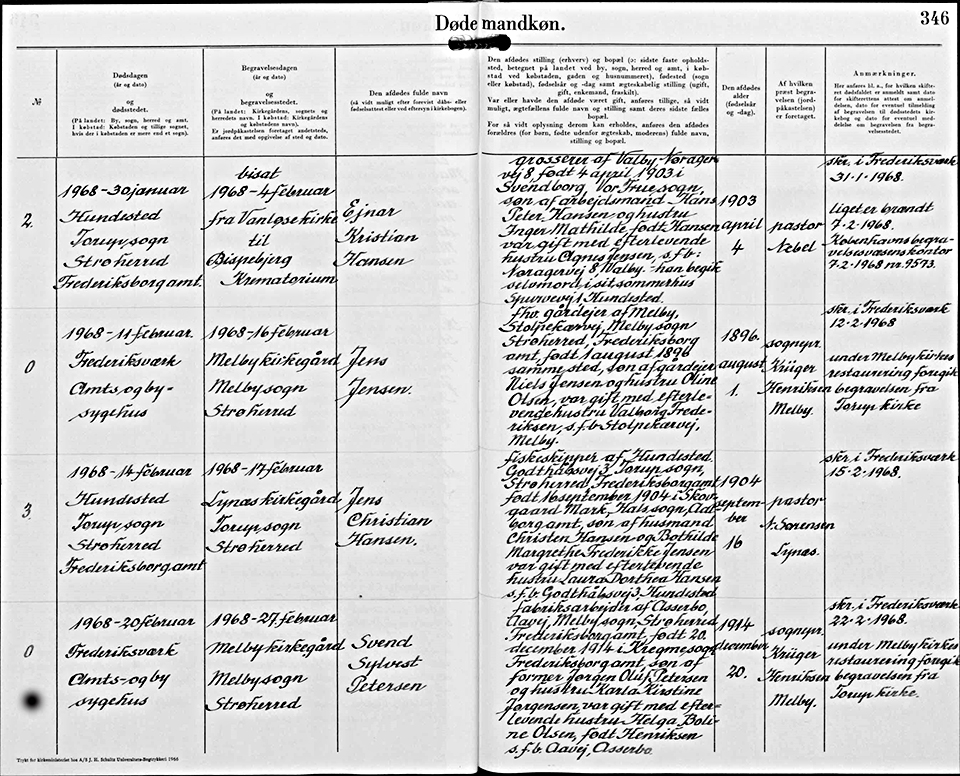 Døde mandkøn.
346
№
Dødsdagen
(år og dato)
og
dødsstedet.
(På landet: By, sogn, herred og amt.
I købstad: Købstaden og tillige sognet,
hvis der i købstaden er mere end et sogn).
Begravelsesdagen
(år og dato)
og
begravelsesstedet.
(På landet: Kirkegårdens, sognets og
herredets navn. I købstad: Kirkegårdens
og købstadens navn).
Er jordpåkastelsen foretaget andetsteds,
anføres det med opgivelse af sted og dato.
Den afdødes fulde navn
(så vidt muligt efter forevist dåbs- eller
fødselsattest eller ved eftersyn i kirkebogen).
Den afdødes stilling (erhverv) og bopæl (ɔ: sidste faste opholds-
sted, betegnet på landet ved by, sogn, herred og amt, i køb-
stad ved købstaden, gaden og husnummeret), fødested (sogn
eller købstad), fødselsår og -dag samt ægteskabelig stilling (ugift,
gift, enkemand, fraskilt).
Var eller havde den afdøde været gift, anføres tillige, så vidt
muligt, ægtefællens fulde navn og stilling samt deres sidste fælles
bopæl.
For så vidt oplysning derom kan erholdes, anføres den afdødes
forældres (for børn, fødte udenfor ægteskab, moderens) fulde navn,
stilling og bopæl.
Den afdødes
alder
(fødselsår
og -dag).
Af hvilken
præst begra-
velsen (jord-
påkastelsen)
er foretaget.
Anmærkninger.
Her anføres bl. a., for hvilken skifte-
ret dødsfaldet er anmeldt samt dato
for skifterettens attest om anmel-
delsen, dato for eventuel tilmelding
om begravelsen til dødsstedets kir-
kebog og dato for eventuel med-
delelse om begravelsen fra begra-
velsesstedet.
2.
1968-30 januar
Hundested
Torup sogn
Strø herred
Frederiksborg amt.
bisat
1968-4 februar
fra Vanløse kirke
til
Bispebjerg
Krematorium
Ejnar
Kristian
Hansen
grosserer af Valby Norager
vej 8, født 4 april 1903 i
Svendborg Vor Frue sogn,
søn af arbejdsmand Hans
Peter Hansen og hustru
Inger Mathilde født Hansen
var gift med efterlevende
hustru Agnes Jensen, s.f.b:
Noragervej 8 Valby. - han begik
selvmord i sit sommerhus
Spurvevej 1 Hundested.
1903
april
4
pastor
Næbel
skr. i Frederiksværk
31·1·1968.
liget er brændt
7·2·1968.
Københavns begra-
velsesvæsens kontor
7·2·1968 nr. 9573.
0
1968-11 februar
Frederiksværk
Amts og by-
sygehus
1968-16 februar
Melby kirkegård
Melby sogn
Strø herred
Jens
Jensen.
fhv. gårdejer af Melby,
Stolpekærvej, Melby sogn
Strø herred, Frederiksborg
amt, født 1 august 1896
samme sted, søn af gårdejer
Niels Jensen og hustru Oline
Olsen, var gift med efterle-
vende hustru Valborg Frede-
riksen, s.f.b Stolpekærvej,
Melby.
1896
august
1.
sognepr.
Krüger
Henriksen
Melby.
skr. i Frederiksværk
12·2·1968
under Melby kirkes
restaurering foregik
begravelsen fra
Torup kirke
3.
1968-14 februar
Hundested
Torup sogn
Strø herred
Frederiksborg amt
1968-17 februar
Lynæs kirkegård
Torup sogn
Strø herred
Jens
Christian
Hansen.
fiskeskipper af Hundested.
Godthåbsvej 3, Torup sogn,
Strø herred, Frederiksborg amt
født 16 september 1904 i Skov-
gaard Mark, Hals sogn, Aal-
borg amt, søn af husmand
Christen Hansen og Bothilde
Margrethe Frederikke Jensen
var gift med efterlevende
hustru Laura Dorthea Hansen
s.f.b. Godthåbsvej 3, Hundested
1904
septem-
ber
16
pastor
N. Sørensen
Lynæs.
skr. i Frederiksværk
15·2·1968.
0
1968-20 februar
Frederiksværk
Amts-og by
sygehus
1968-27 februar
Melby kirkegård
Melby sogn
Strø herred
Svend
Sylvest
Petersen
fabriksarbejder af Asserbo,
Aavej, Melby sogn, Strø herred
Frederiksborg amt, født 20.
december 1914 i Kregme sogn
Frederiksborg amt, søn af
former Jørgen Oluf Petersen
og hustru Karla Kirstine
Jørgensen, var gift med efter-
levende hustru Helga Boli-
ne Olsen, født Henriksen
s.f.b. Aavej, Asserbo
1914
december
20.
sognepr.
Krüger
Henriksen
Melby.
skr. i Frederiksværk
22·2·1968.
under Melby kirkes
restaurering foregik
begravelsen fra
Torup kirke.
Trykt for kirkeministeriet hos A/S J. H. Schultz Universitets-Bogtrykkeri 1966